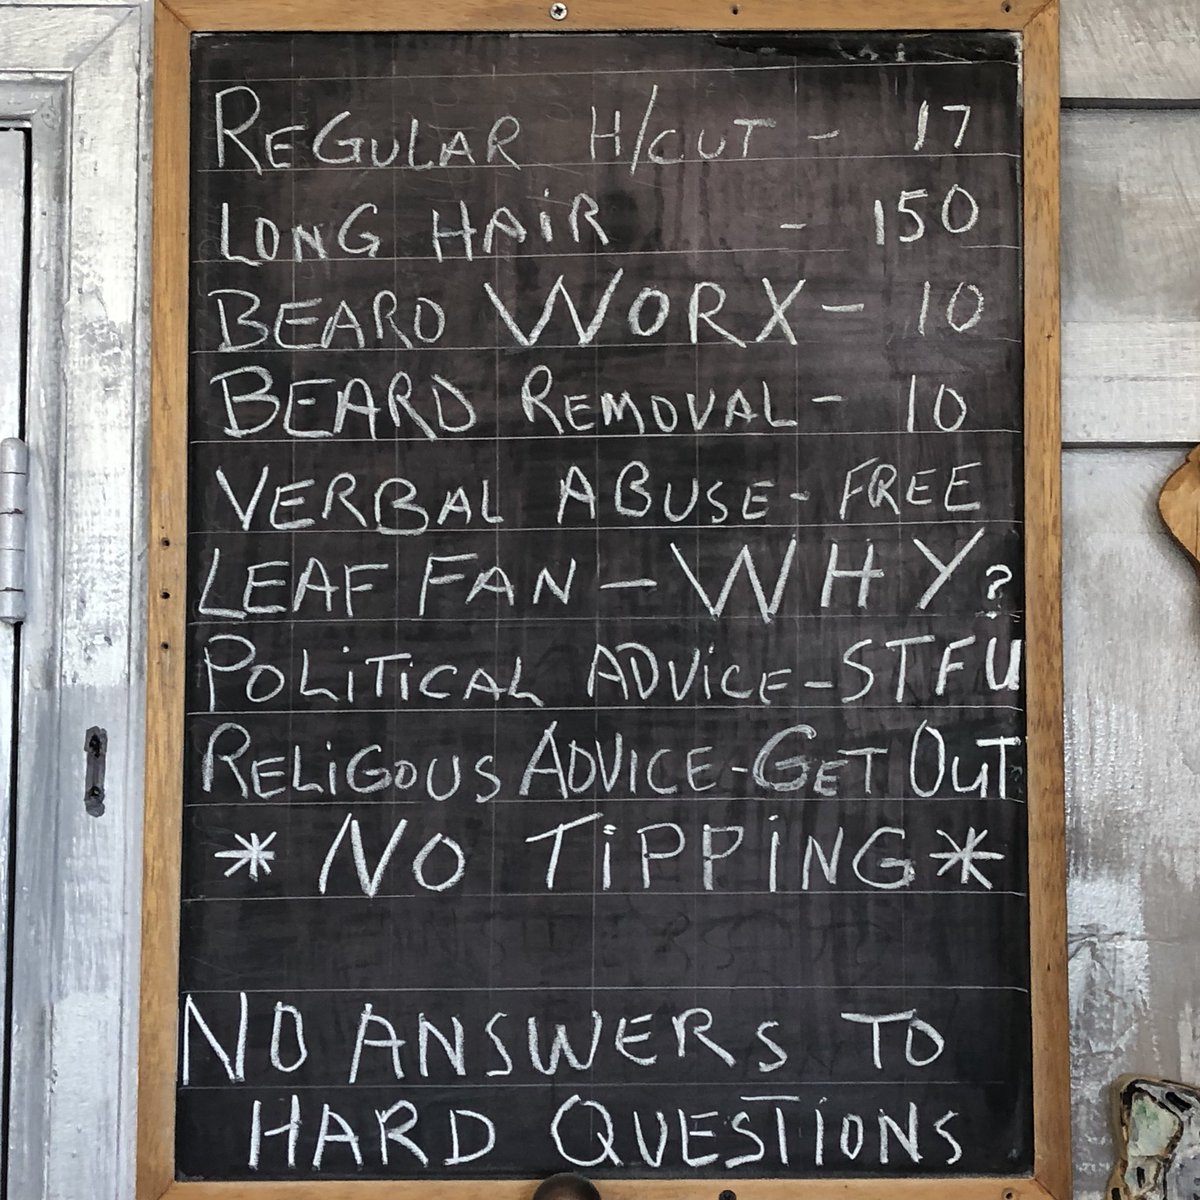 REGULAR H/CUT - 17
LONG HAiR - 150
BEARD WORX - 10
BEARD REMOVAL - 10
VERBAL ABUSE - FREE
LEAF FAN - WHY?
POLiTiCAL ADViCE - STFU
RELiGOUS ADVICE - GET OUT
* NO TiPPiNG *
NO ANSWERS TO
HARD QUESTiONS